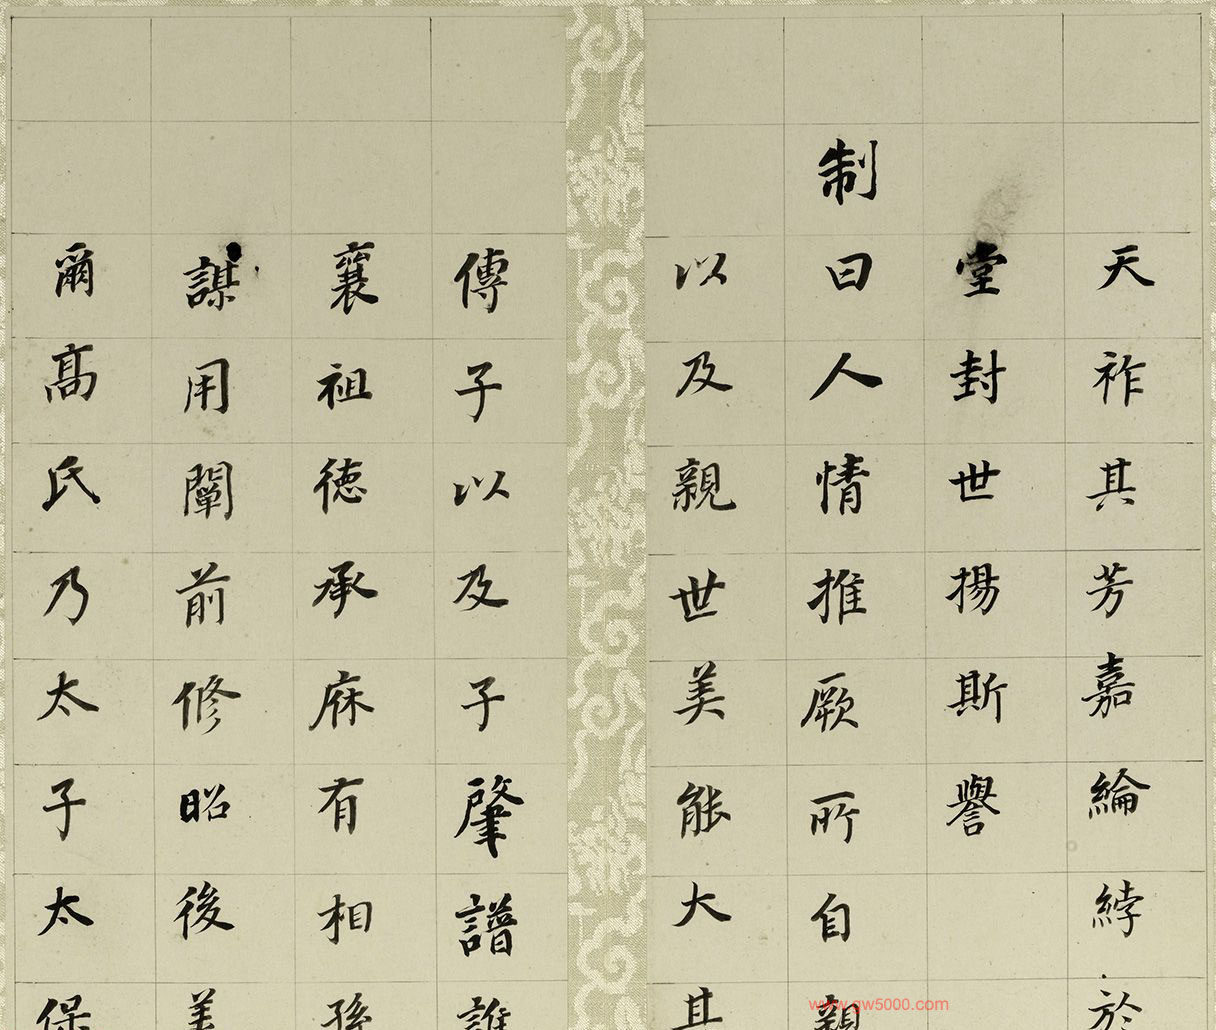 天祚其芳嘉綸綍於
堂封世揚斯譽
制曰人情推厥所自親
以及親世美能大其
傳子以及子肇譜誰
襄祖德承庥有相孫
謀用闡前修昭後美
爾高氏乃太子太保
www.gw5000.com